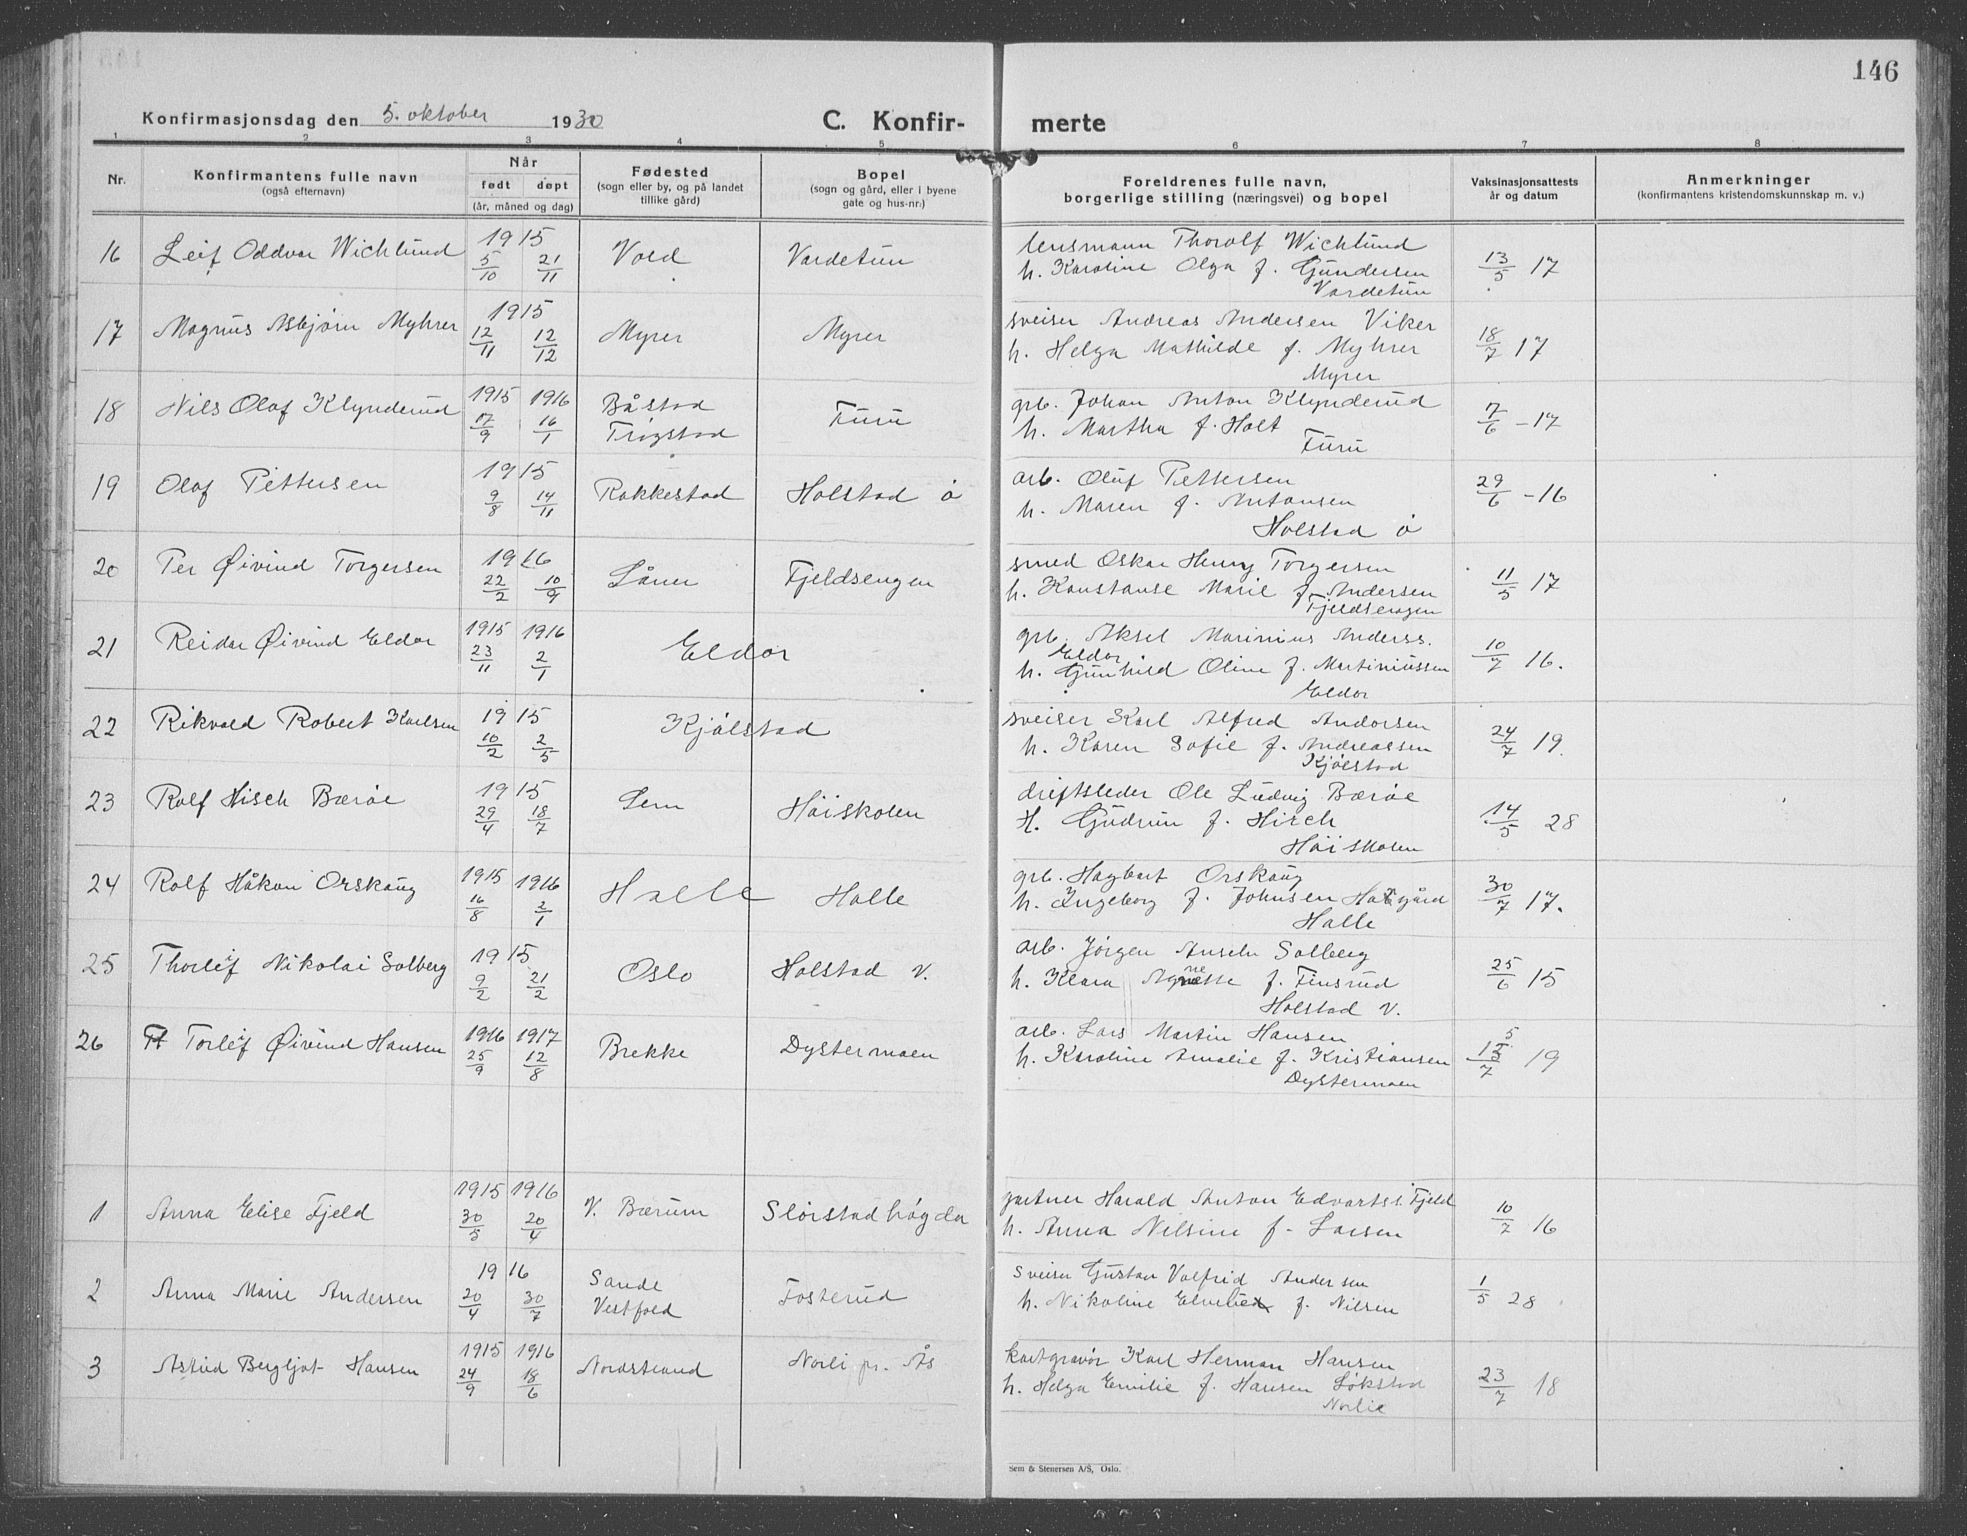 146
Konfirmasjonsdag den 5. oktober 1930
C. Konfir- merte
1 2 3 4 5 6 7 8
Nr.
Konfirmantens fulle navn
(også efternavn)
Når
født døpt
(år, måned og dag)
Fødested
(sogn eller by, og på landet
tillike gård)
Bopel
(sogn og gård, eller i byene
gate og hus-nr.)
Foreldrenes fulle navn,
borgerlige stilling (næringsvei) og bopel
Vaksinasjonsattests
år og datum
Anmerkninger
(konfirmantens kristendomskunnskap m. v.)
16 Leif Oddvar Wichlund 1915 5/10 21/11 Vold Vardetun
lensmann Thoralf Wichlund
h. Karoline Olga f. Gundersen
Vardetun
13/5 17
17 Magnus Asbjørn Myhrer 1915 12/11 12/12 Myrer Myrer
sveiser Andreas Andersen Viker
h. Helga Mathilde f. Myhrer
Myrer
18/7 17
18 Nils Olaf Klynderud 1915 1916 17/9 16/1 Båstad Trøgstad Furu
grb. Johan Anton Klynderud
h. Martha f. Holt
Furu
7/6 - 17
19 Olaf Pettersen 1915 9/8 14/11 Rakkestad Holstad ø
arb. Oluf Pettersen
h. Maren f. Antonsen
Holstad ø
29/6 - 16
20 Per Øivind Torgersen 1916 22/2 10/9 Såner Fjeldsengen
smed Oskar Henry Torgersen
h. Konstanse Marie f. Andersen
Fjeldsengen
11/5 17
21 Reidar Øivind Eldor 1915 1916 23/11 2/1 Eldor
grb. Aksel Marinius Anderss.
Eldor
h. Gunhild Oline f. Martiniussen
Eldor
10/7 16.
22 Rikvald Robert Karlsen 1915 10/2 2/5 Kjølstad
sveiser Karl Alfred Andorsen
h. Karen Sofie f. Andreassen
Kjølstad
24/7 19.
23 Rolf Hisch Bærøe 1915 29/4 18/7 Sem Høiskolen
driftsleder Ole Ludvig Bærøe
H. Gudrun f. Hisch
Høiskolen
14/5 28
24 Rolf Håkon Orskaug 1915 1916 16/8 2/1 Halle Holle
grb. Hagbart Orskaug
h. Ingeborg f. Johnsen
Holle
30/7 17.
25 Thorleif Nikolai Solberg 1915 9/2 21/2 Oslo Holstad v.
arb. Jørgen Anseln Solberg
h. Klara f. Finsrud
Holstad v.
25/6 15
26 Torleif Øivind Hansen 1916 1917 25/9 12/8 Brekke Dystermoen
arb. Lars Martin Hansen
h. Karoline Amalie f. Kristiansen
Dystermoen
19
1 Anna Elise Fjeld 1915 1916 30/5 20/4 V. Bærum Slørstadhøgda
gartner Harald Anton Edvartss. Fjeld
h. Anna Nilsine f. Larsen
10/7 16
2 Anna Marie Andersen 1916 20/4 30/7 Sande Vestfold Fosterud
sveiser Gustav Valfrid Andersen
h. Nikoline f. Nilsen
1/5 28
3 Astrid Bergljot Hansen 1915 1916 24/9 18/6 Nordstrand Norli pr. Ås
kartgravør Karl Herman Hansen
h. Helga Emilie f. Hansen Løkstad
Norlie
23/7 18
Sem & Stenersen A/S, Oslo.